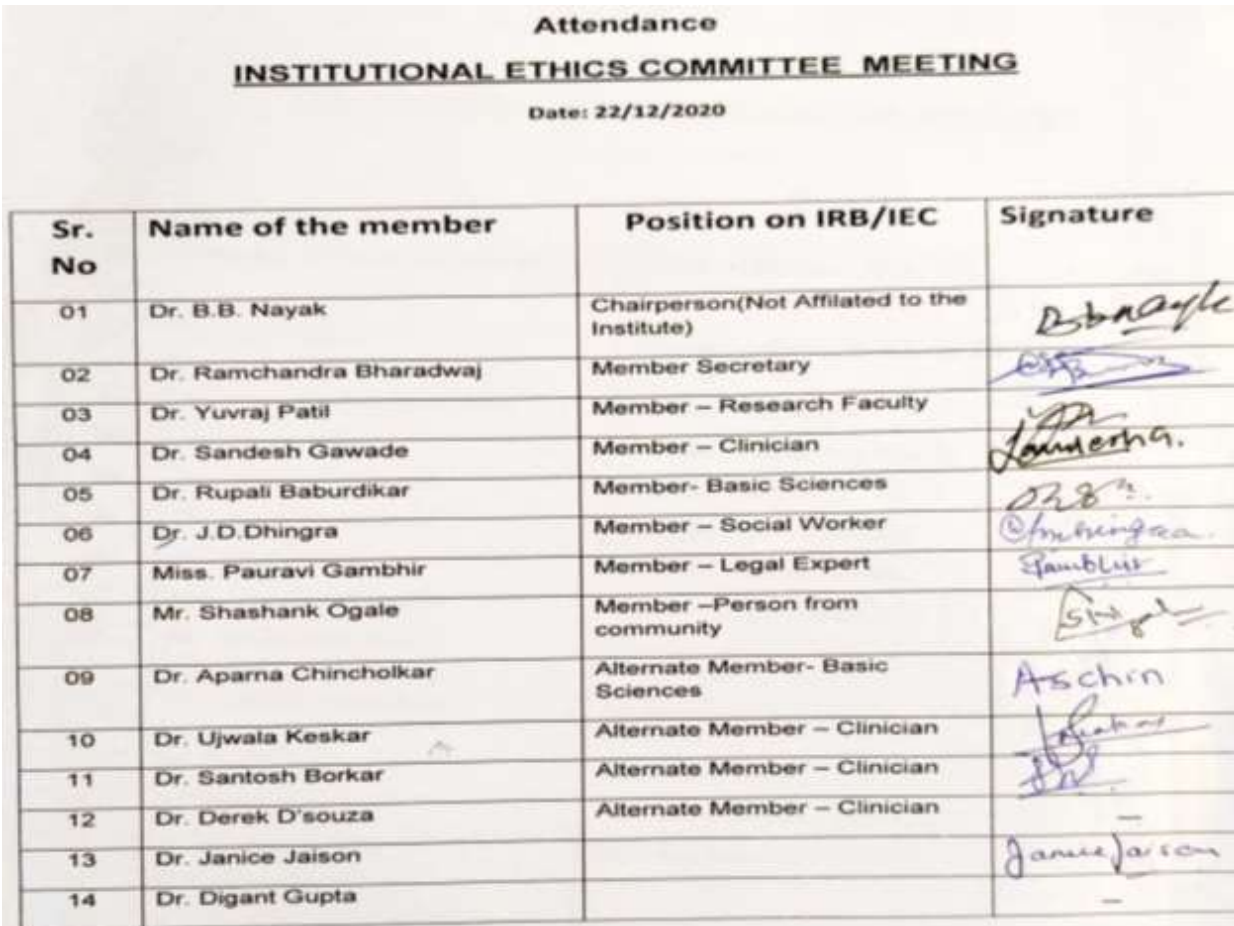 Attendance
INSTITUTIONAL ETHICS COMMITTEE MEETING
Date: 22/12/2020
Sr. No Name of the member Position on IRB/IEC Signature
01 Dr. B.B. Nayak Chairperson(Not Affilated to the
Institute)
02 Dr. Ramchandra Bharadwaj Member Secretary
03 Dr. Yuvraj Patil Member – Research Faculty
04 Dr. Sandesh Gawade Member – Clinician
05 Dr. Rupali Baburdikar Member- Basic Sciences
06 Dr. J.D.Dhingra Member – Social Worker
07 Miss. Pauravi Gambhir Member – Legal Expert
08 Mr. Shashank Ogale Member –Person from
community
09 Dr. Aparna Chincholkar Alternate Member- Basic
Sciences Aschin
10 Dr. Ujwala Keskar Alternate Member – Clinician
11 Dr. Santosh Borkar Alternate Member – Clinician
12 Dr. Derek D'souza Alternate Member – Clinician –
13 Dr. Janice Jaison Janice Jaison
14 Dr. Digant Gupta –